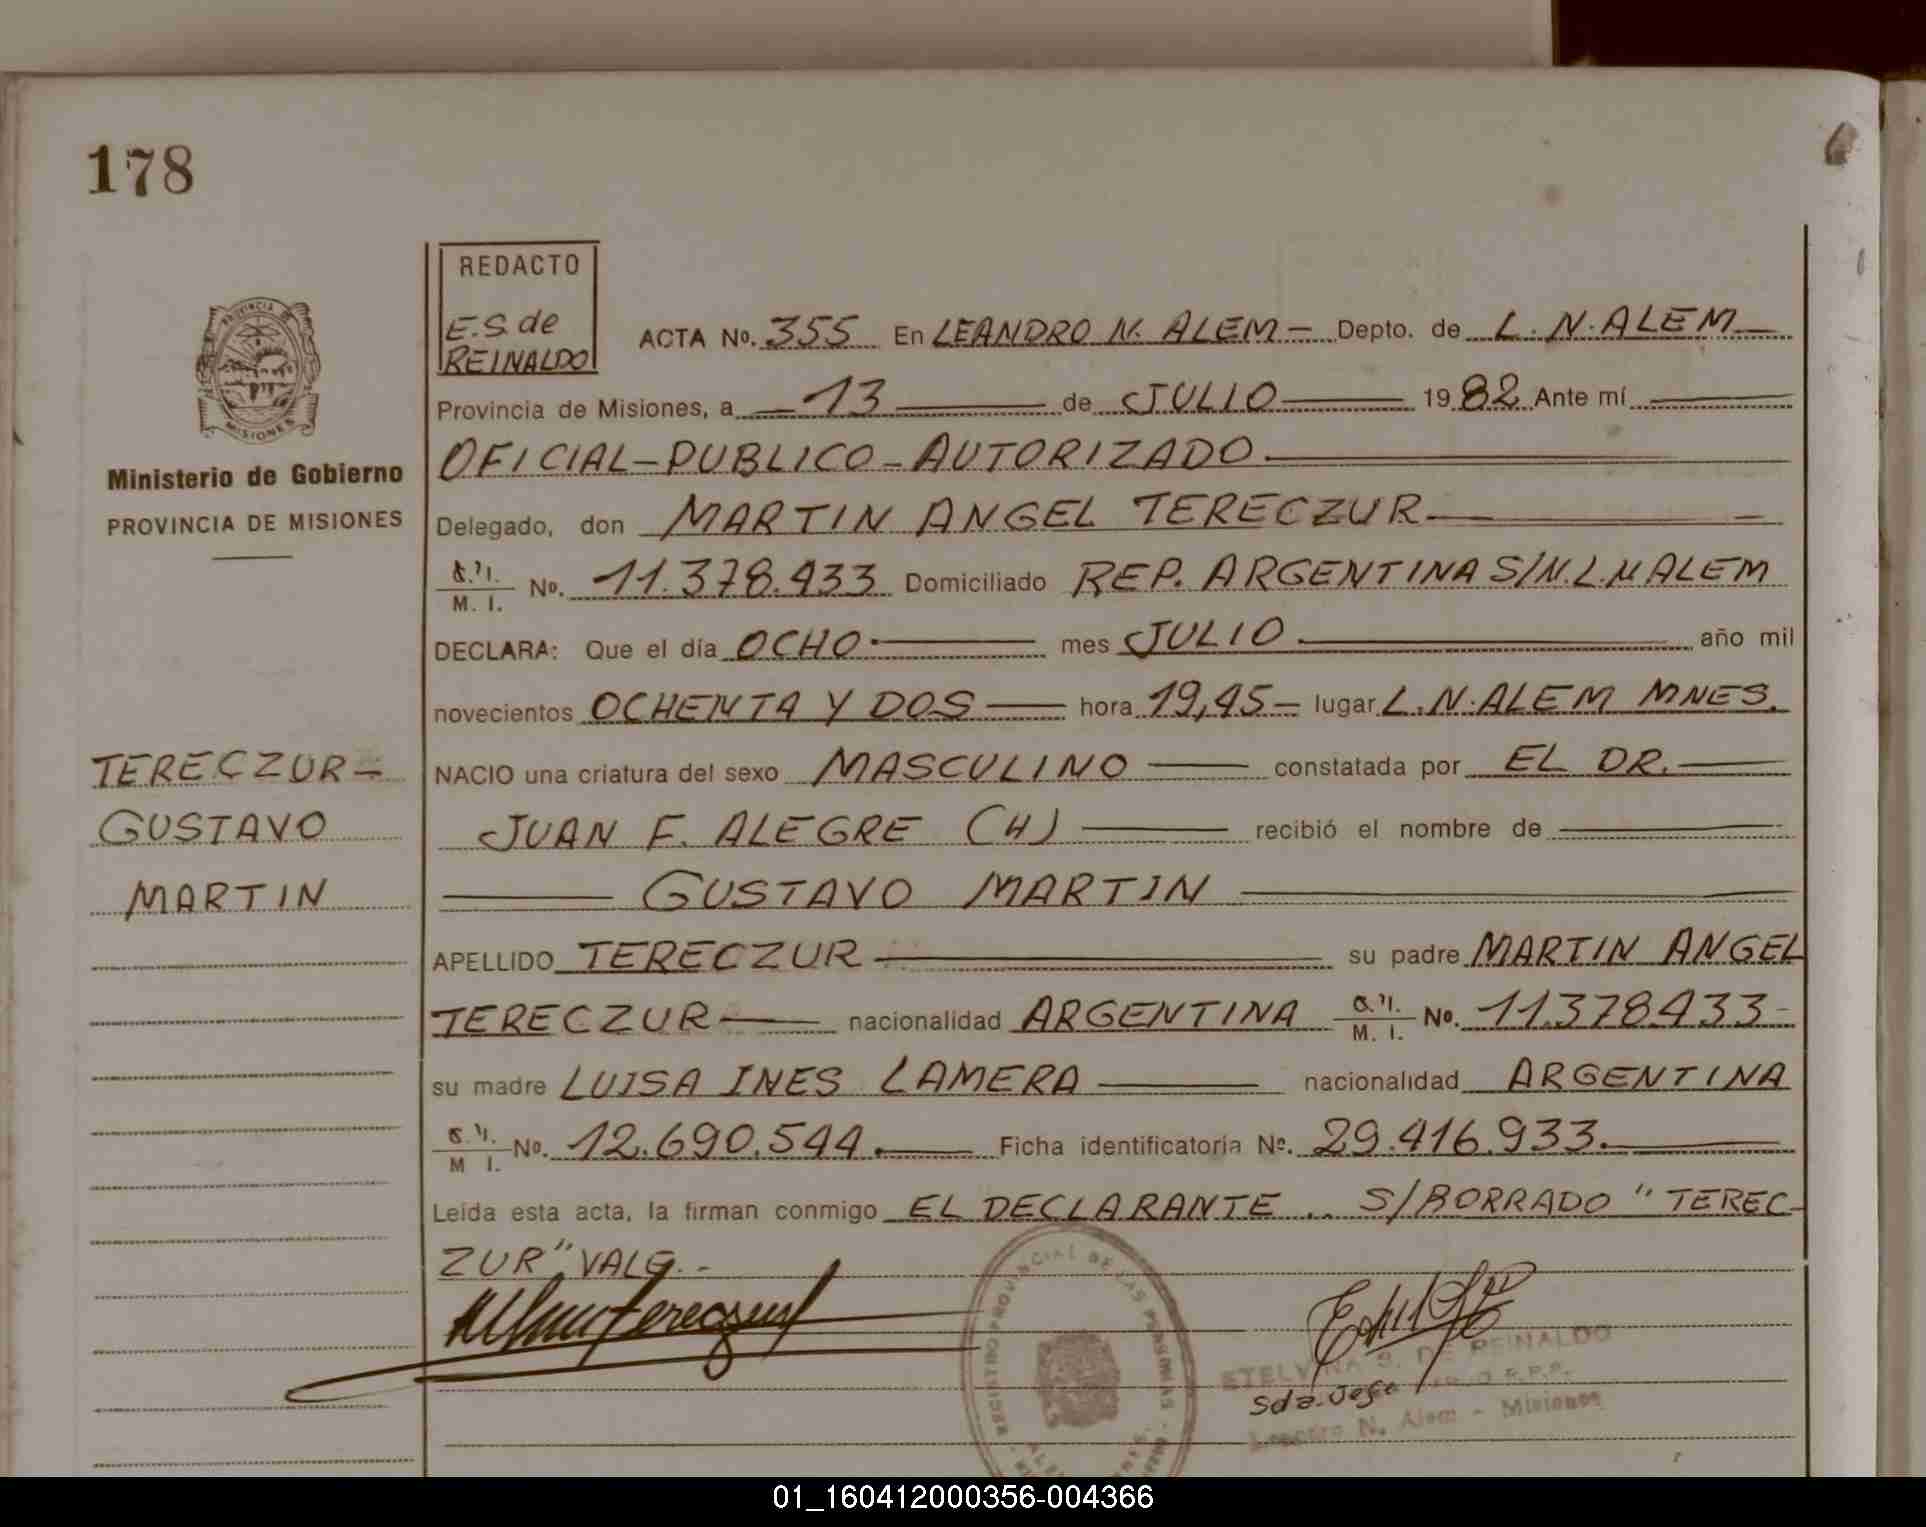 178
REDACTO
E.S. de
REINALDO
PROVINCIA DE
MISIONES
Ministerio de Gobierno
PROVINCIA DE MISIONES
TERECZUR -
GUSTAVO
MARTIN
ACTA No. 355 En LEANDRO N. ALEM - Depto. de L. N. ALEM
Provincia de Misiones, a 13 de JULIO 1982 Ante mí
OFICIAL-PUBLICO-AUTORIZADO
Delegado, don MARTIN ANGEL TERECZUR
M. I. No. 11.378.433 Domiciliado REP. ARGENTINA S/N. L.N ALEM
DECLARA: Que el día OCHO mes JULIO año mil
novecientos OCHENTA Y DOS hora 19,45 - lugar L.N. ALEM MNES.
NACIO una criatura del sexo MASCULINO constatada por EL DR.
JUAN F. ALEGRE (H) recibió el nombre de
GUSTAVO MARTIN
APELLIDO TERECZUR su padre MARTIN ANGEL
TERECZUR nacionalidad ARGENTINA M. I. No. 11.378.433 -
su madre LUISA INES LAMERA nacionalidad ARGENTINA
M I. No. 12.690.544. Ficha identificatoria No. 29.416.933.
Leída esta acta, la firman conmigo EL DECLARANTE .. S/BORRADO "TEREC-
ZUR" VALE.-
REGISTRO PROVINCIAL DE LAS PERSONAS
ETELVINA S. DE REINALDO
Sda. Jefe R.P.P.
Leandro N. Alem - Misiones
01_160412000356-004366